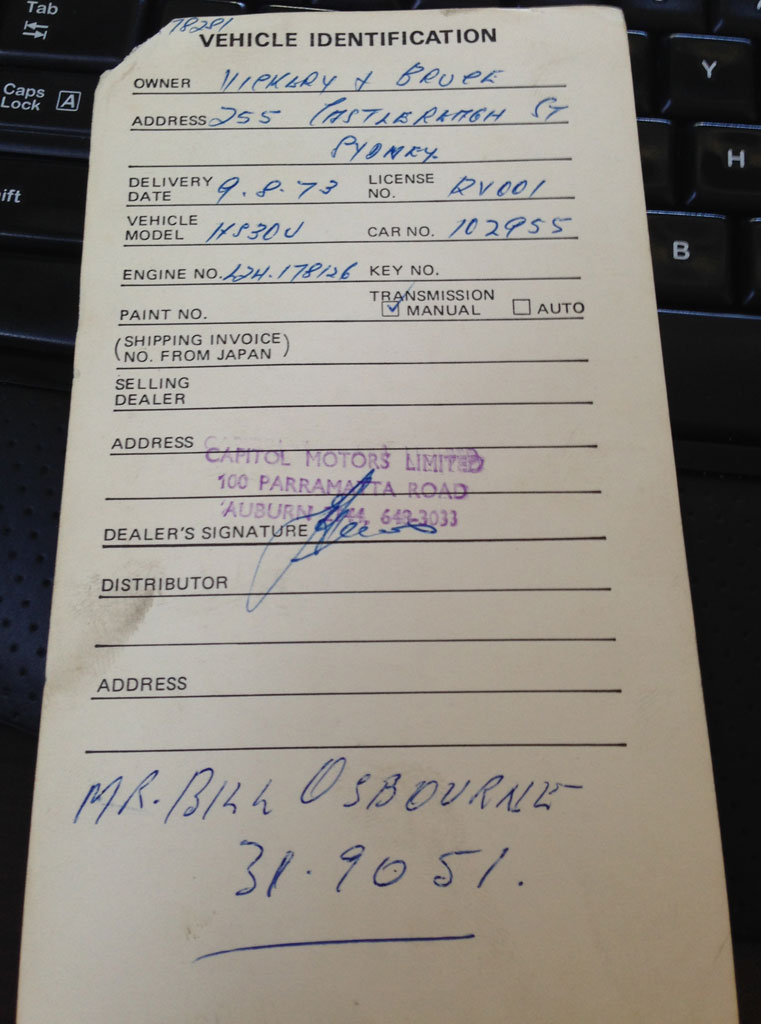 78281
VEHICLE IDENTIFICATION
OWNER VICKERY & BRUCE
ADDRESS 255 CASTLEREAGH ST
SYDNEY
DELIVERY DATE 9.8.73 LICENSE NO. RV001
VEHICLE MODEL HS30U CAR NO. 102955
ENGINE NO. L24.178126 KEY NO.
PAINT NO. TRANSMISSION ☑ MANUAL ☐ AUTO
(SHIPPING INVOICE NO. FROM JAPAN)
SELLING DEALER
ADDRESS
CAPITOL MOTORS LIMITED
100 PARRAMATTA ROAD
AUBURN 2144, 648-3033
DEALER'S SIGNATURE
DISTRIBUTOR
ADDRESS
MR. BILL OSBOURNE
31.9051.
Tab
Caps Lock A
ift
Y
H
B